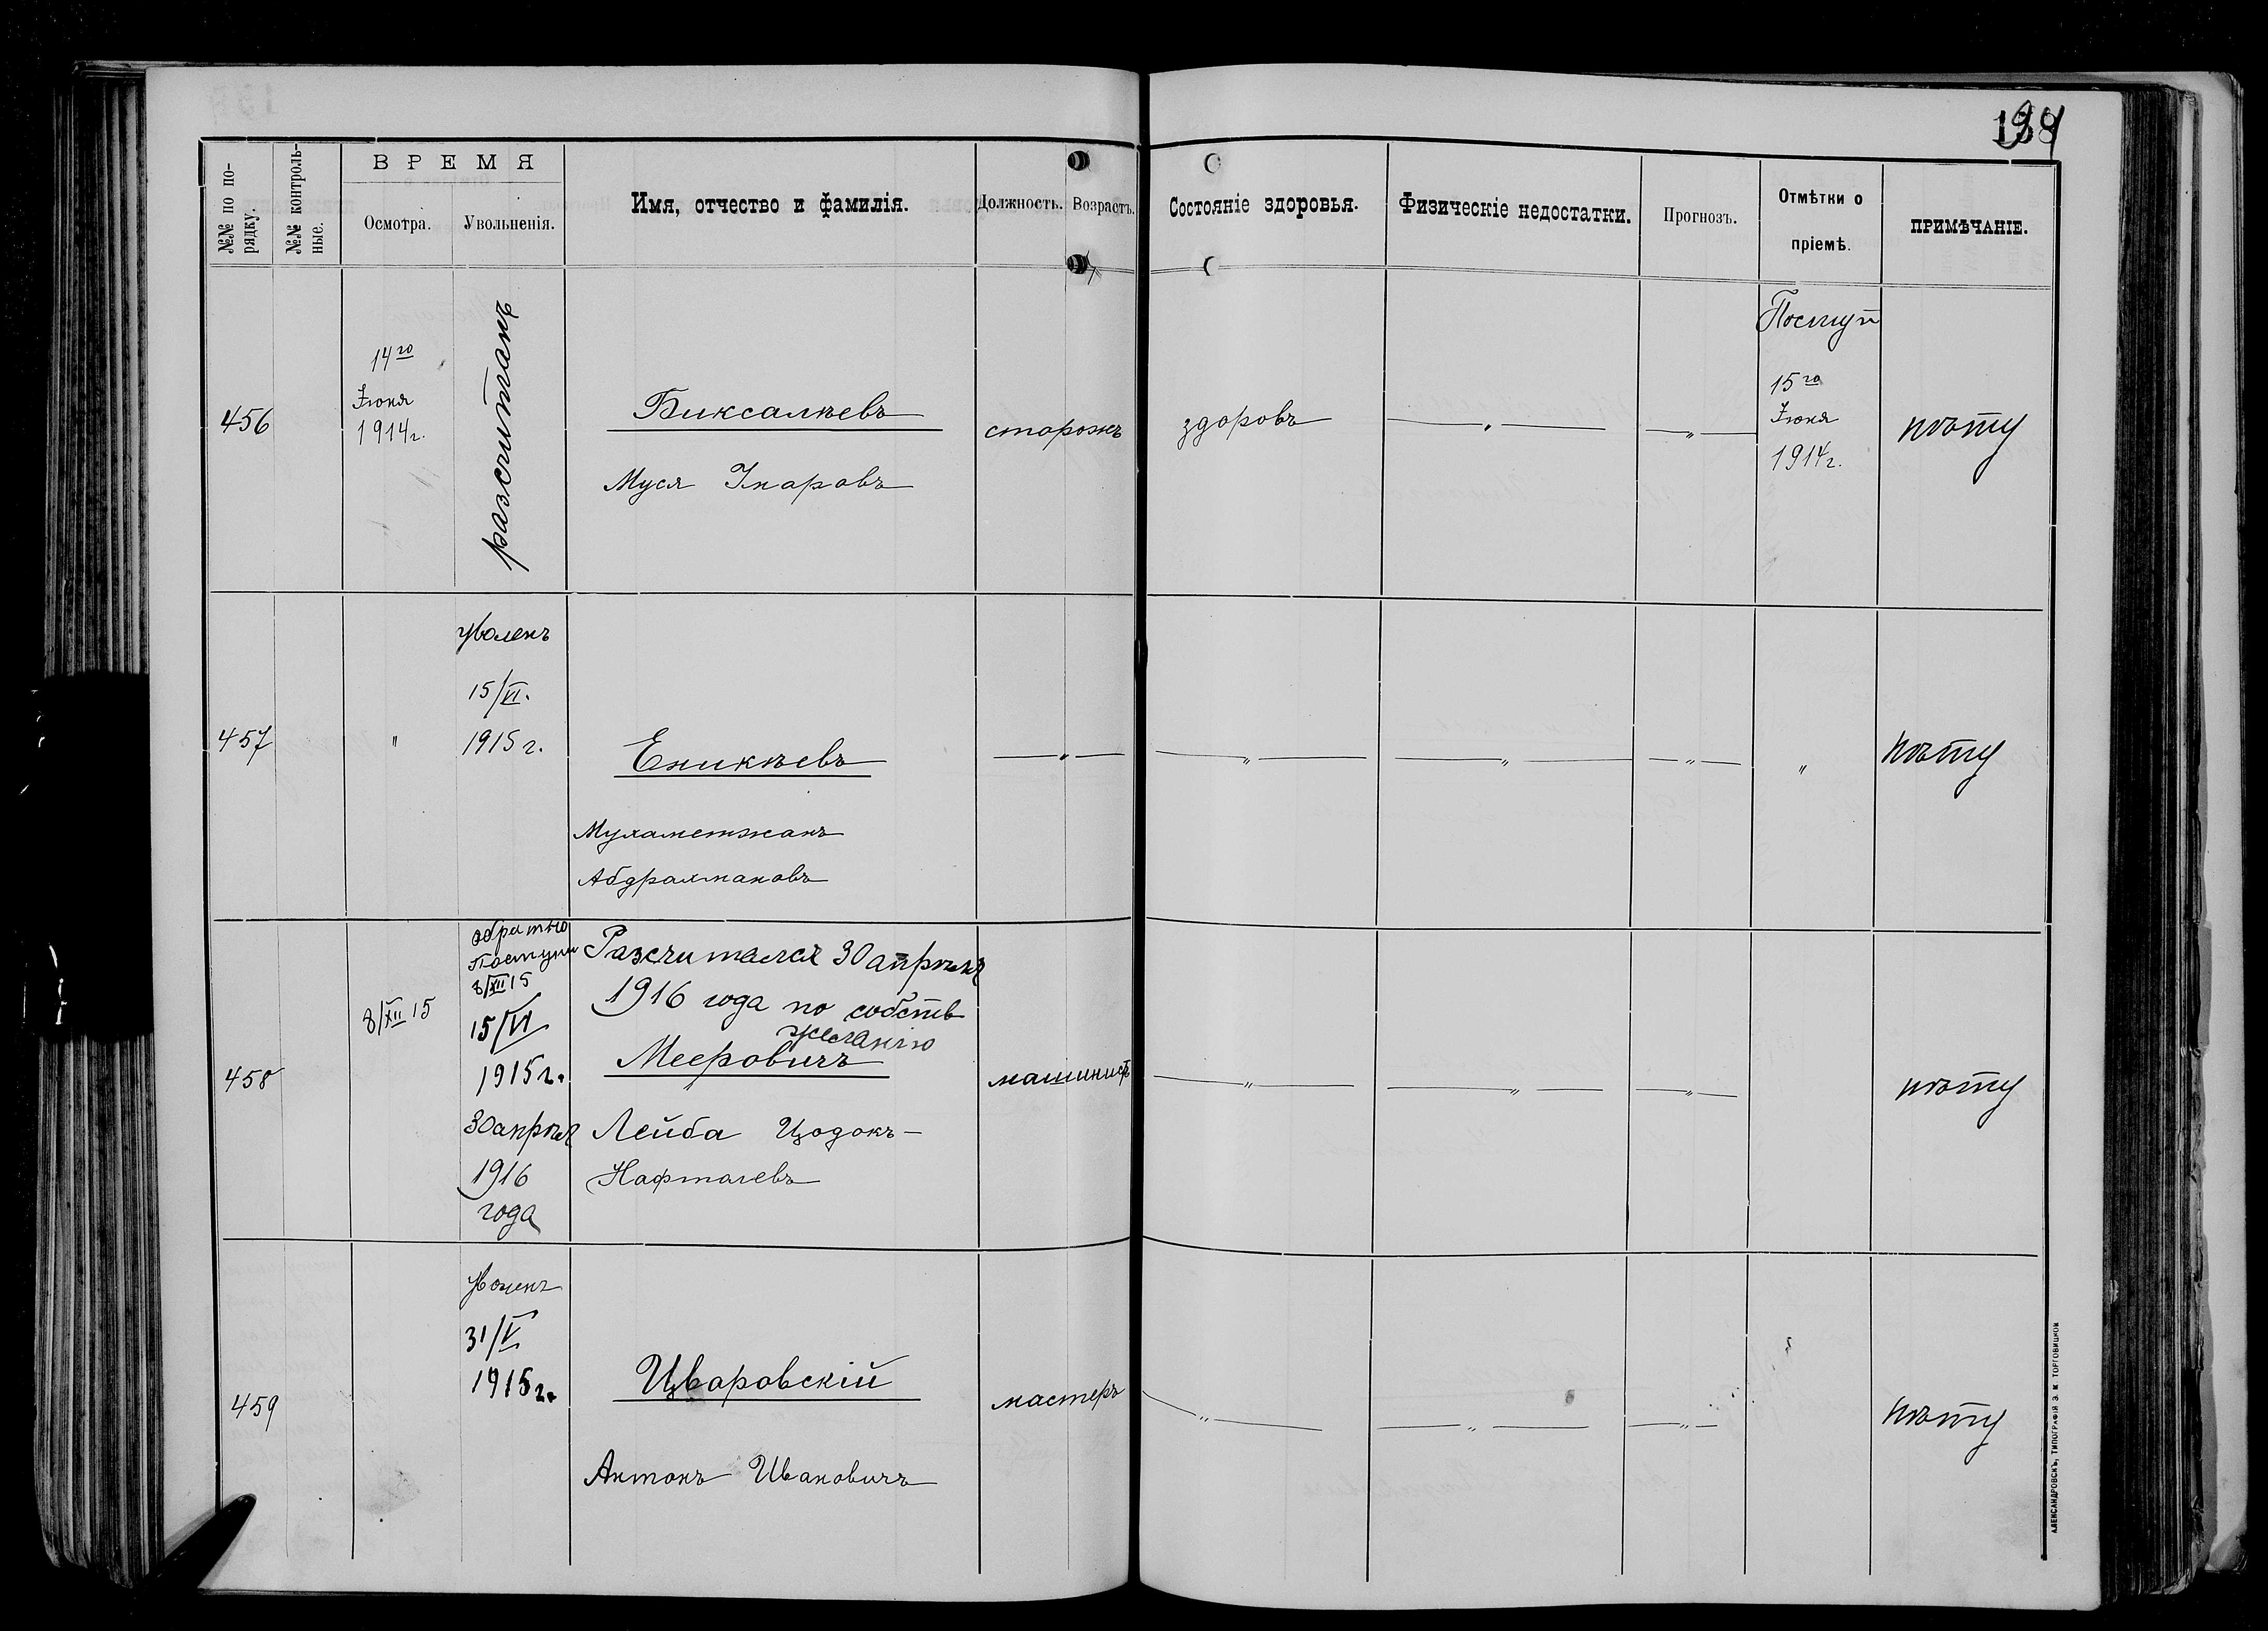 134
№№ по по-
рядку.
№№ контроль-
ные.
ВРЕМЯ
Осмотра.
Увольненія.
Имя, отчество и фамилія.
Должность.
Возрастъ.
Состояніе здоровья.
Физическіе недостатки.
Прогнозъ.
Отмѣтки о
пріемѣ.
ПРИМѢЧАНІЕ.
456
14го
Іюня
1914г.
разсчитанъ
Биксалѣевъ
Муся
сторожъ
здоровъ
"
"
Поступ
15го
Іюня
1914г.
457
"
уволенъ
15/VI.
1915 г.
Еникѣевъ
Мухаметжанъ
Абдрахмановъ
"
"
"
"
"
458
8/XII 15
обратно
Поступи
8/XII 15
15/VI
1915 г.
30 апрѣля
1916
года
Разсчитался 30 апрѣля
1916 года по собств
желанію
Мееровичъ
Лейба Цодокъ-
Нафталевъ
машинистъ
"
"
"
459
уволенъ
31/V
1915 г.
Цваровскій
Антонъ Ивановичъ
мастеръ
"
"
"
АЛЕКСАНДРОВСКЪ, ТИПОГРАФІЯ Э. М. ТОРГОВИЦКОЙ